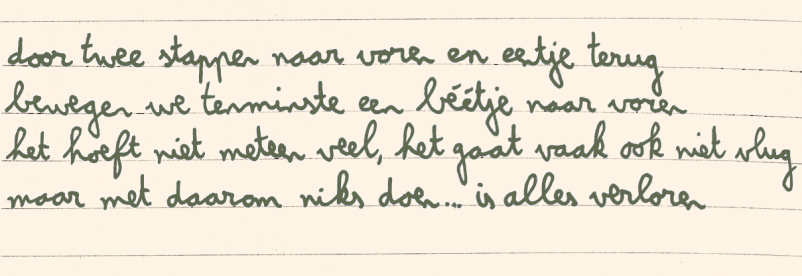 door twee stappen naar voren en eentje terug
bewegen we tenminste een béétje naar voren
het hoeft niet meteen veel, het gaat vaak ook niet vlug
maar met daarom niks doen... is alles verloren